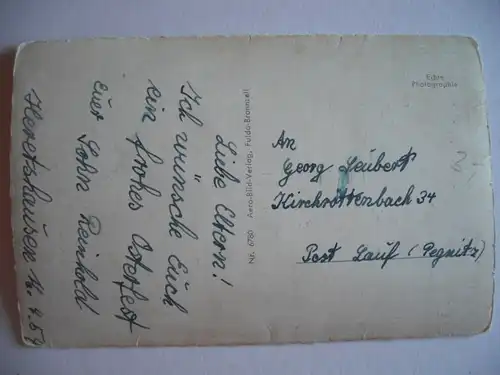 Liebe Eltern!
Ich wünsche Euch
ein frohes Osterfest
euer Sohn Reinhold
Heretshausen 16.4.54
Nr. 6780 Aero-Bild-Verlag, Fulda-Bronnzell
Echte
Photographie
An
Georg Leubert
Kirchröttenbach 34
Post Lauf (Pegnitz)